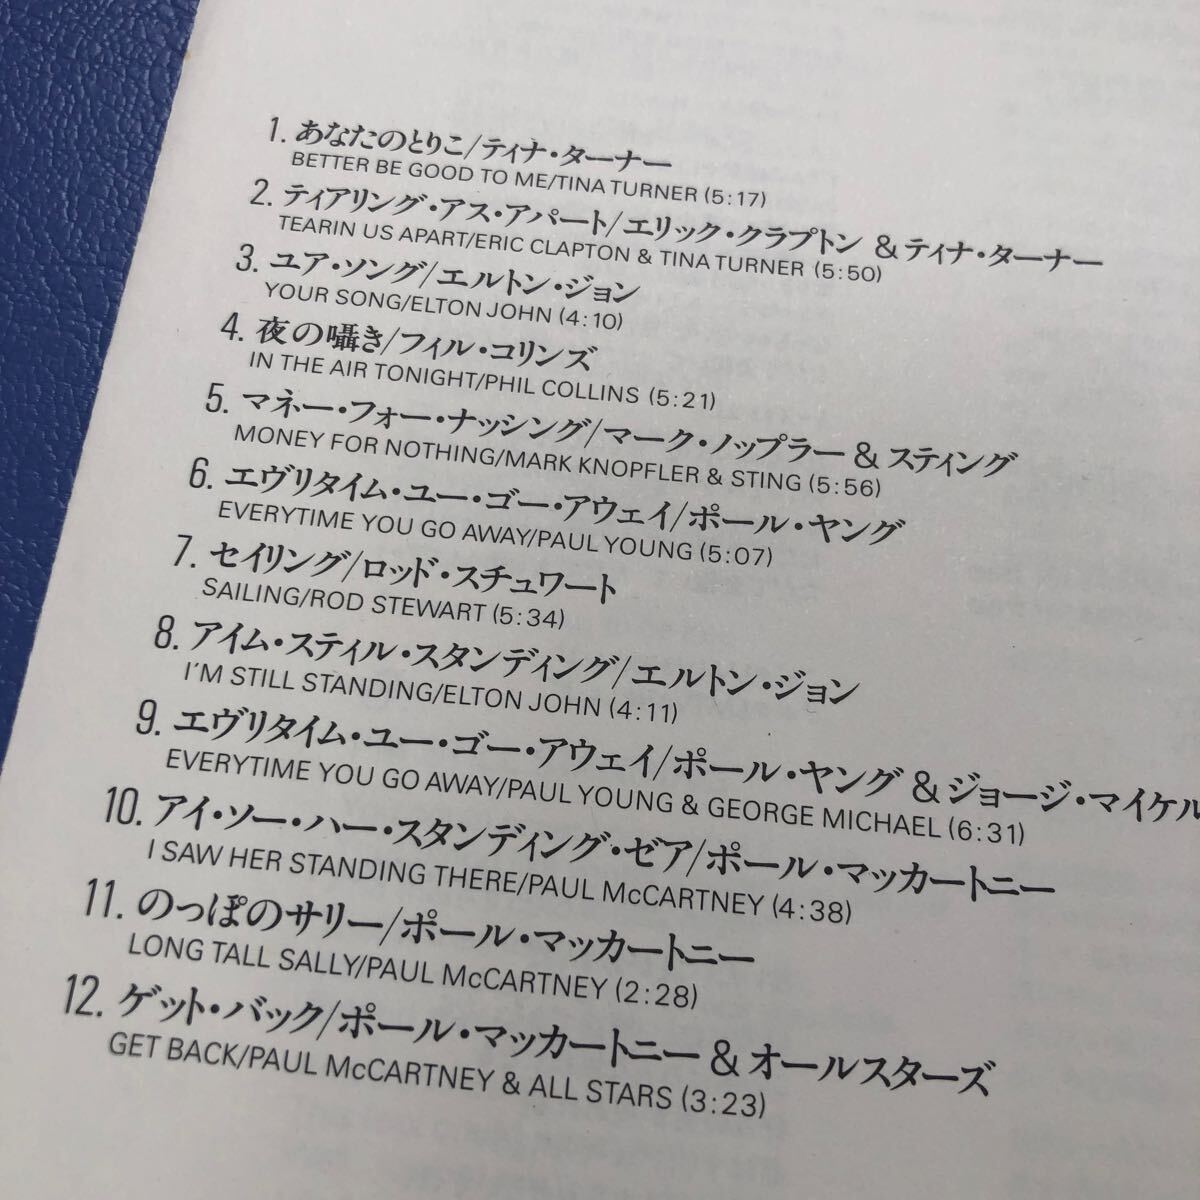 1. あなたのとりこ/ティナ・ターナー
BETTER BE GOOD TO ME/TINA TURNER (5:17)
2. ティアリング・アス・アパート/エリック・クラプトン & ティナ・ターナー
TEARIN US APART/ERIC CLAPTON & TINA TURNER (5:50)
3. ユア・ソング/エルトン・ジョン
YOUR SONG/ELTON JOHN (4:10)
4. 夜の囁き/フィル・コリンズ
IN THE AIR TONIGHT/PHIL COLLINS (5:21)
5. マネー・フォー・ナッシング/マーク・ノップラー & スティング
MONEY FOR NOTHING/MARK KNOPFLER & STING (5:56)
6. エヴリタイム・ユー・ゴー・アウェイ/ポール・ヤング
EVERYTIME YOU GO AWAY/PAUL YOUNG (5:07)
7. セイリング/ロッド・スチュワート
SAILING/ROD STEWART (5:34)
8. アイム・スティル・スタンディング/エルトン・ジョン
I'M STILL STANDING/ELTON JOHN (4:11)
9. エヴリタイム・ユー・ゴー・アウェイ/ポール・ヤング & ジョージ・マイケル
EVERYTIME YOU GO AWAY/PAUL YOUNG & GEORGE MICHAEL (6:31)
10. アイ・ソー・ハー・スタンディング・ゼア/ポール・マッカートニー
I SAW HER STANDING THERE/PAUL McCARTNEY (4:38)
11. のっぽのサリー/ポール・マッカートニー
LONG TALL SALLY/PAUL McCARTNEY (2:28)
12. ゲット・バック/ポール・マッカートニー & オールスターズ
GET BACK/PAUL McCARTNEY & ALL STARS (3:23)